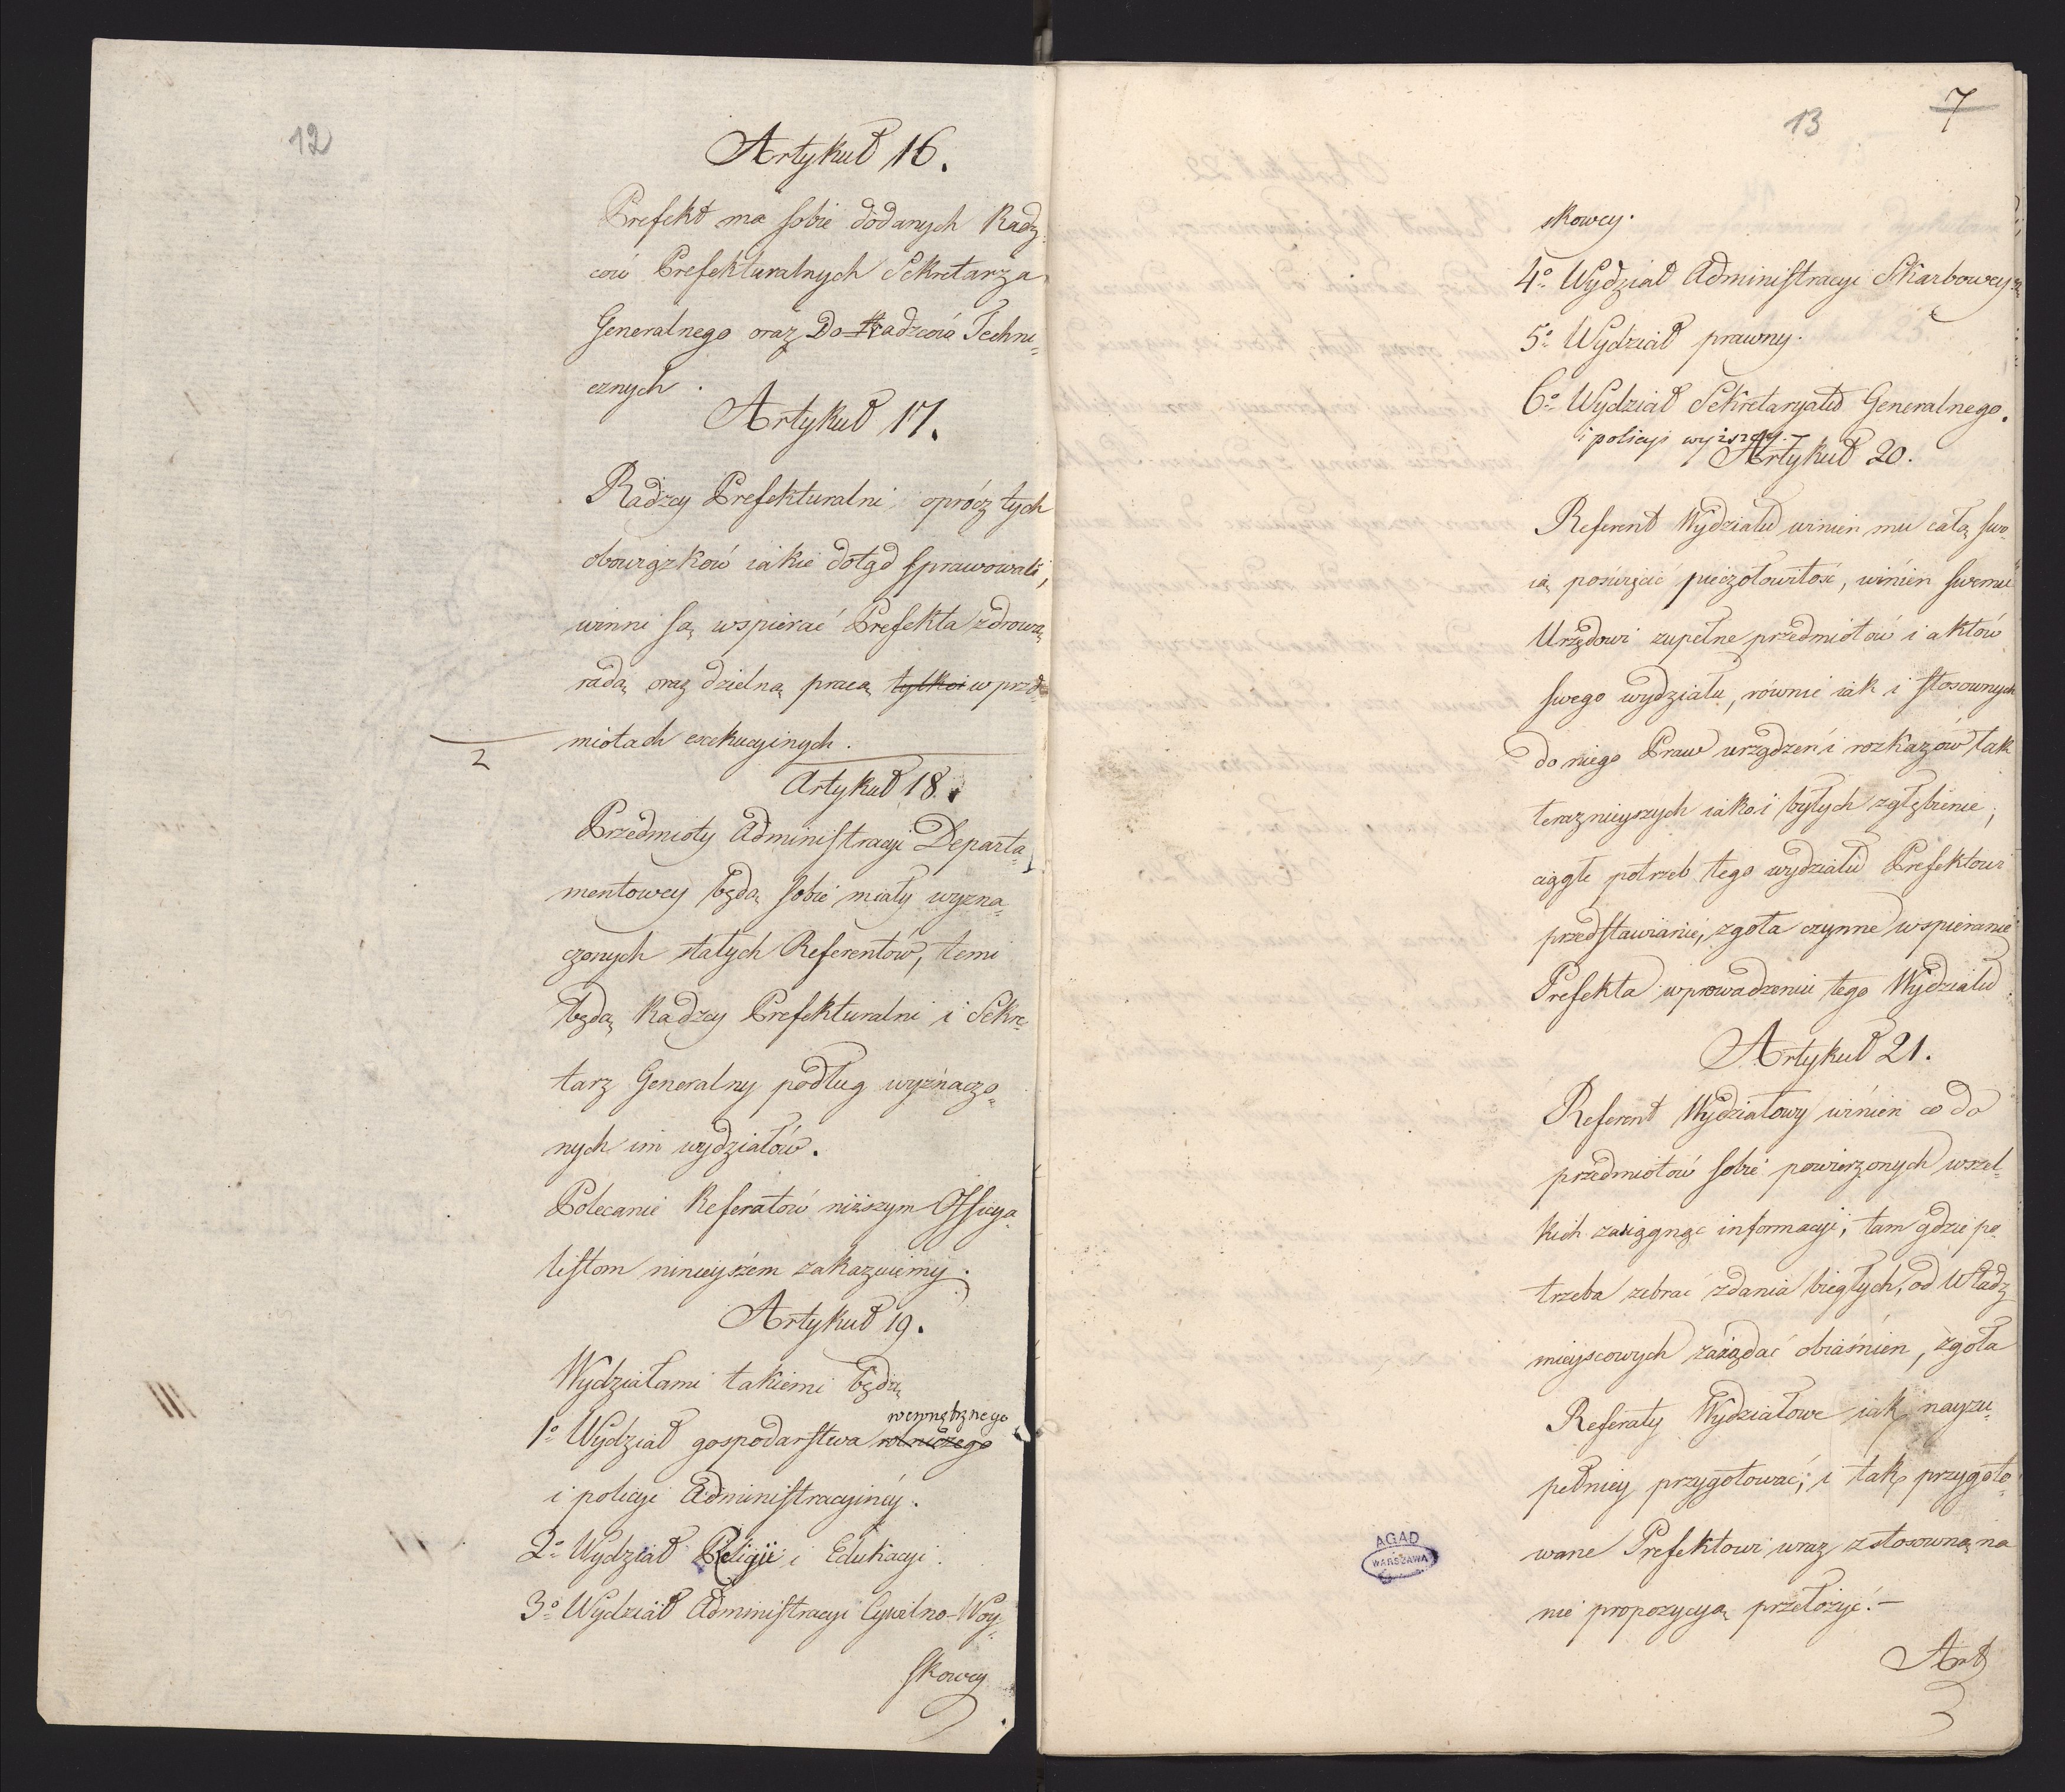 12
Artykuł 16.
Prefekt ma sobie dodanych Radz-
ców Prefekturalnych Sekretarza
Generalnego oraz Do Radzców Techni=
cznych.
Artykuł 17.
Radzcy Prefekturalni, oprócz tych
obowiązków iakie dotąd sprawowali,
winni są wspierać Prefekta zdrową
radą oraz dzielną pracą tylko i w przed=
miotach exekucyinych.
2
Artykuł 18.
Przedmioty Administracyi Departa=
mentowey będą sobie miały wyzna=
czonych stałych Referentów, temi
będą Radzcy Prefekturalni i Sekre=
tarz Generalny podług wyznaczo=
nych im wydziałów.
Polecanie Referatów niższym Officya=
listom ninieyszém zakazuiemy.
Artykuł 19.
Wydziałami takiemi będą
wewnętrznego
1o Wydział gospodarstwa rolniczego
i policyi Administracyiney.
2o Wydział Religii i Edukacyi.
3o Wydział Administracyi Cywilno-Woy=
skowey
13
7
skowey.
4o Wydział Administracyi Skarbowey
5o Wydział prawny.
6o Wydział Sekretaryatu Generalnego.
i policyi wyższey.-
Artykuł 20.
Referent Wydziału winien mu całą swo=
ią poświęcić pieczołowitość, winien swemu
Urzędowi zupełne przedmiotów i aktów
swego wydziału, równie iak i stosownych
do niego Praw urządzeń i rozkazów tak
teraznieyszych iako i byłych zgłębienie,
ciągłe potrzeb tego wydziału Prefektowi
przedstawianie, zgoła czynne wspieranie
Prefekta wprowadzeniu tego Wydziału
Artykuł 21.
Referent Wydziałowy winien co do
przedmiotów sobie powierzonych wszel=
kich zasiągnąć informacyi, tam gdzie po=
trzeba zebrać zdania biegłych, od Władz
mieyscowych zażądać obiaśnień, zgoła
Referaty Wydziałowe iak nayzu=
pełniey przygotować, i tak przygoto=
wane Prefektowi wraz z stosowną na
nie propozycyą przełożyć.-
Art
AGAD
WARSZAWA